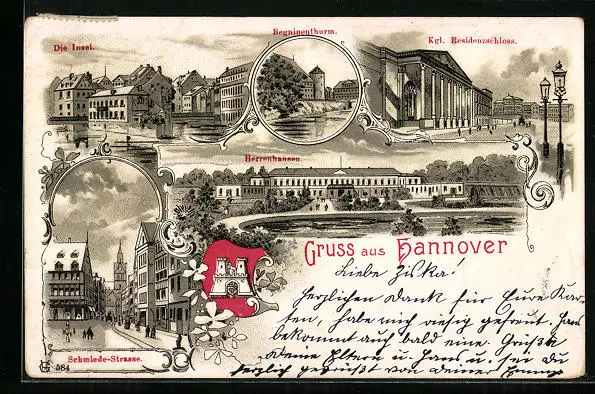 Die Insel.
Beguinenthurm.
Kgl. Residenzschloss.
Herrenhausen
Gruss aus Hannover
Schmiede-Strasse.
584
Liebe Ziska!
Herzlichen Dank für Eure Kar-
ten, habe mich riesig gefreut. Hans
bekommt auch bald eine. Grüße
Deine Eltern u. Hans u. sei du
herzlich gegrüßt von deiner